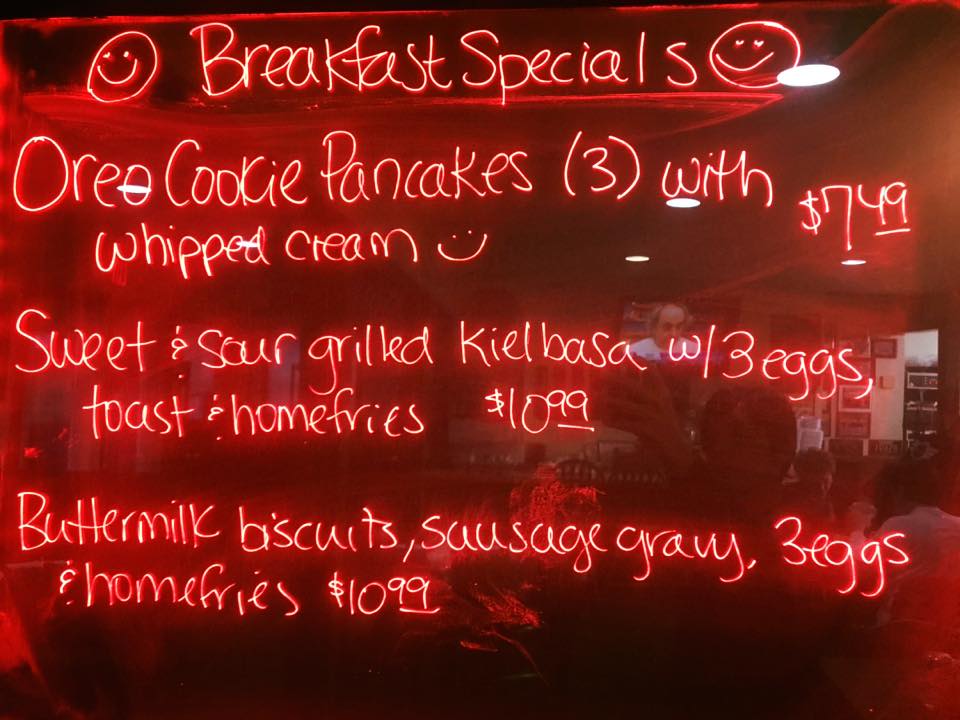 Breakfast Specials
Oreo Cookie Pancakes (3) with
whipped cream $7.49
Sweet & sour grilled kielbasa w/3 eggs,
toast & homefries $10.99
Buttermilk biscuits, sausage gravy, 3 eggs
& homefries $10.99